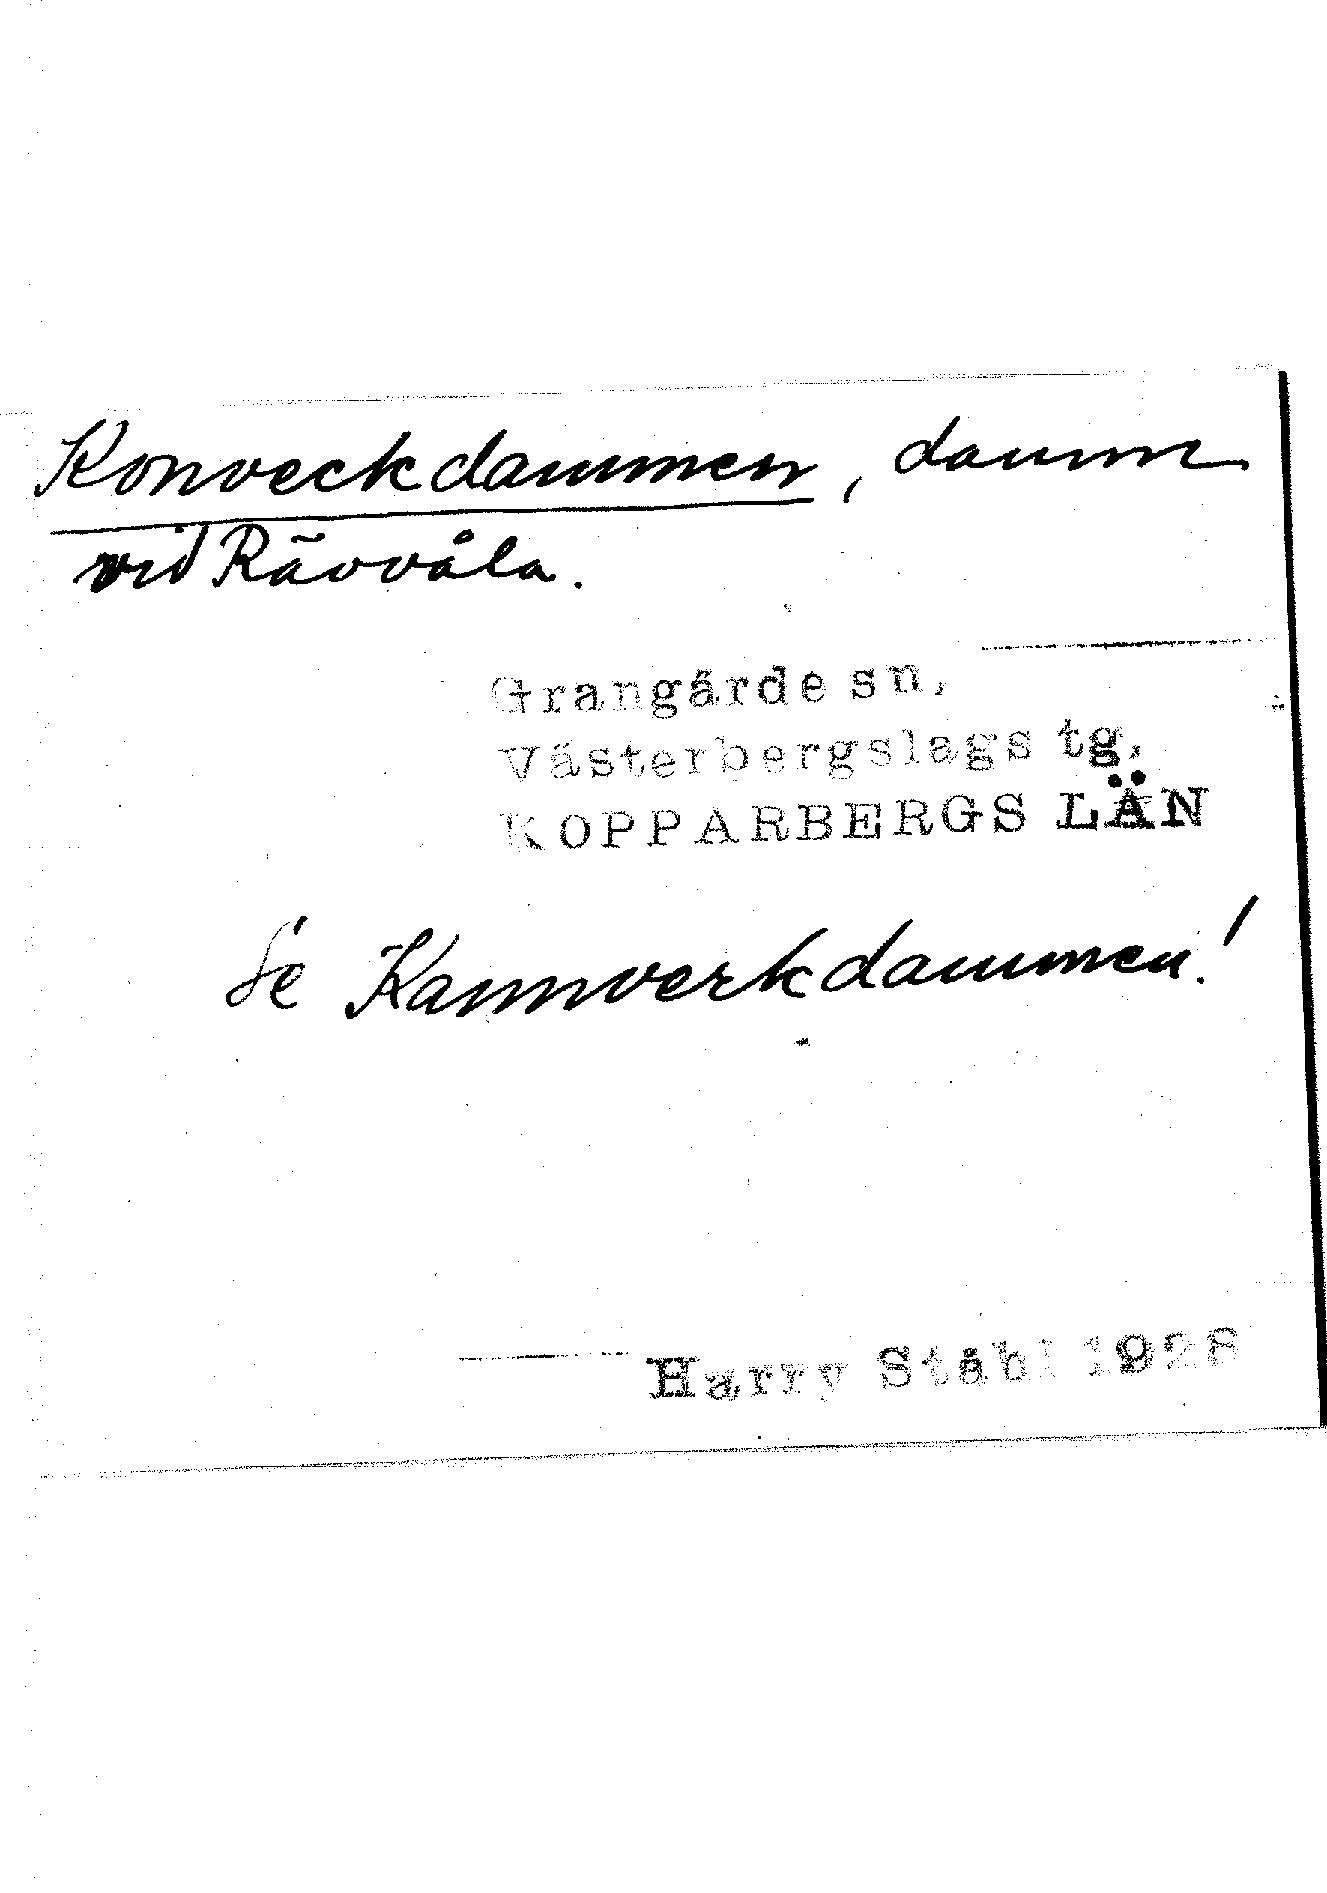 Konveckdammen, damm
vid Rävvåla.
Grangärde sn,
Västerbergslags tg,
KOPPARBERGS LÄN
Se Kannverkdammen!
Harry Ståhl 1928